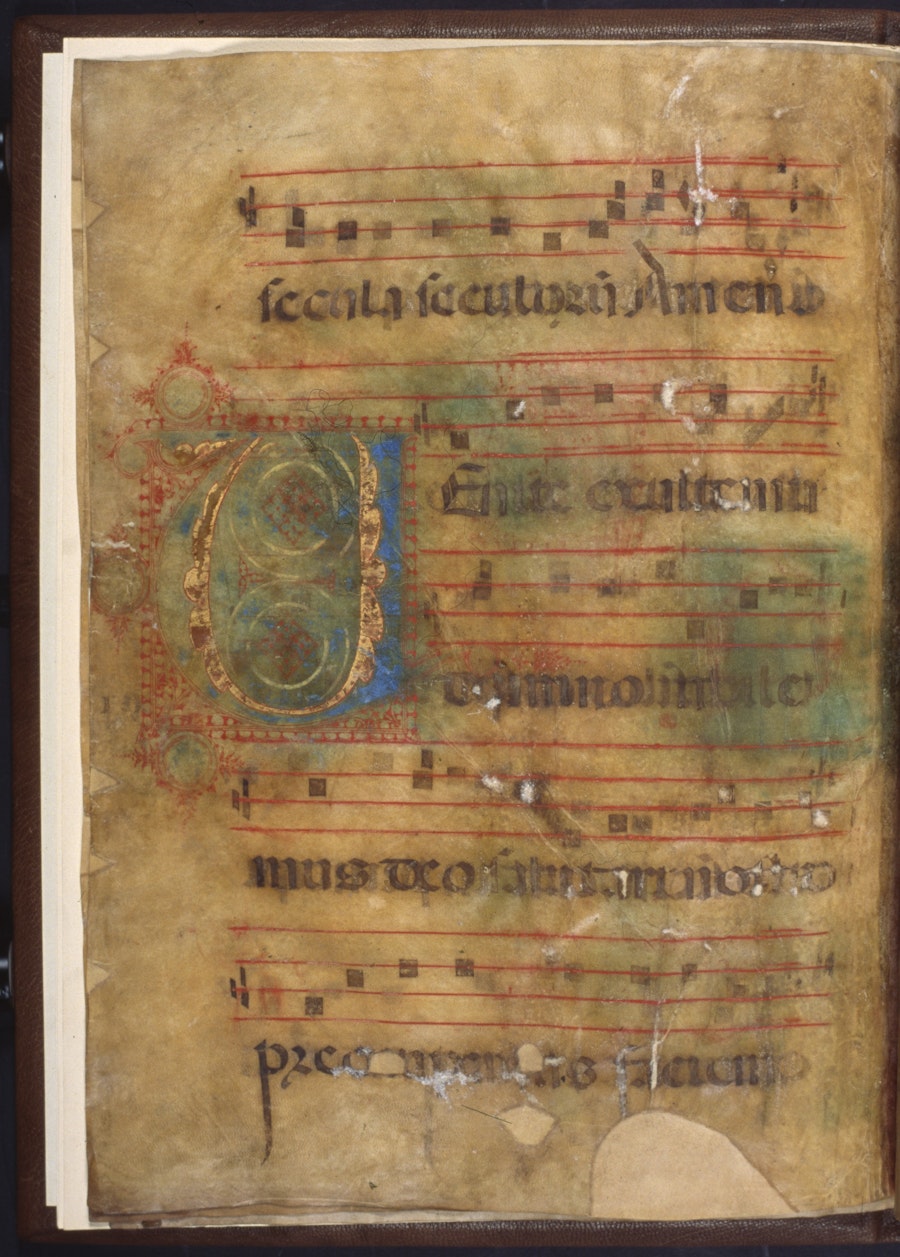 secula seculorũ Amen
Enite exultemus
dño iubile
mus deo salutari nostro
preocupemus faciem